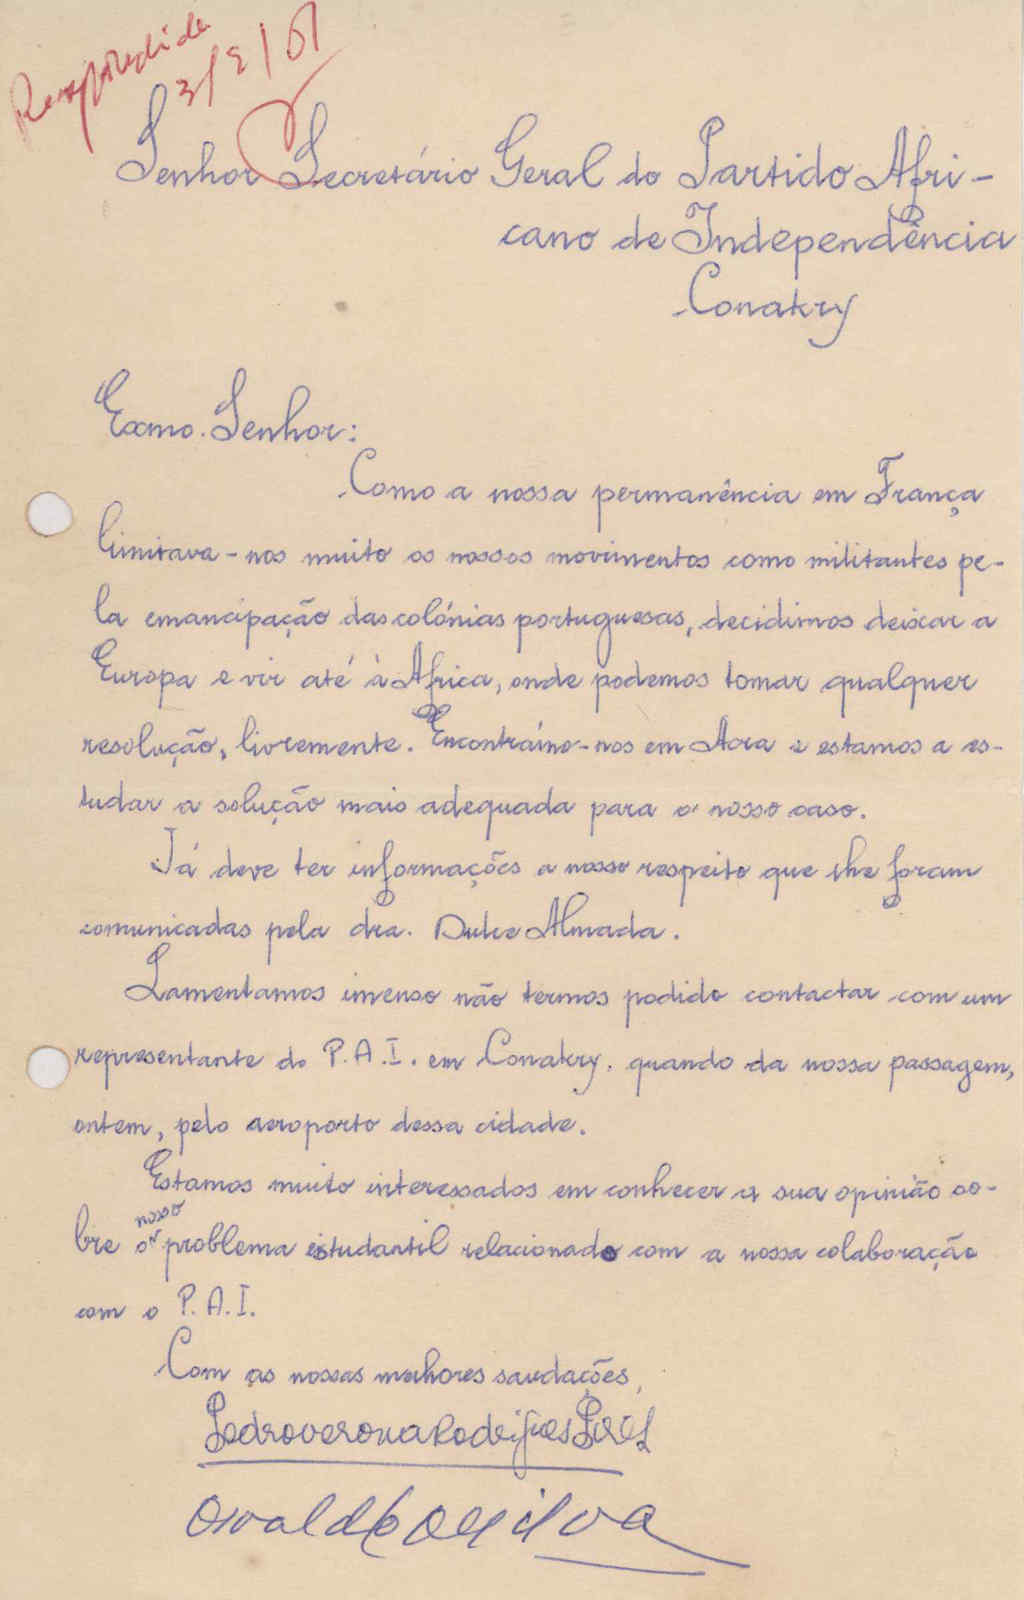 Respondida
3/3/61
Senhor Secretário Geral do Partido Afri-
cano de Independência
Conakry
Exmo. Senhor:
Como a nossa permanência em França
limitava-nos muito os nossos movimentos como militantes pe-
la emancipação das colónias portuguesas, decidimos deixar a
Europa e vir até à África, onde podemos tomar qualquer
resolução, livremente. Encontramo-nos em Acra e estamos a es-
tudar a solução mais adequada para o nosso caso.
Já deve ter informações a nosso respeito que lhe foram
comunicadas pela dra. Dulce Almada.
Lamentamos imenso não termos podido contactar com um
representante do P.A.I. em Conakry, quando da nossa passagem,
ontem, pelo aeroporto dessa cidade.
Estamos muito interessados em conhecer a sua opinião so-
nosso
bre o problema estudantil relacionado com a nossa colaboração
com o P.A.I.
Com as nossas melhores saudações,
Pedro Verona Rodrigues Pires
Osvaldo da Silva